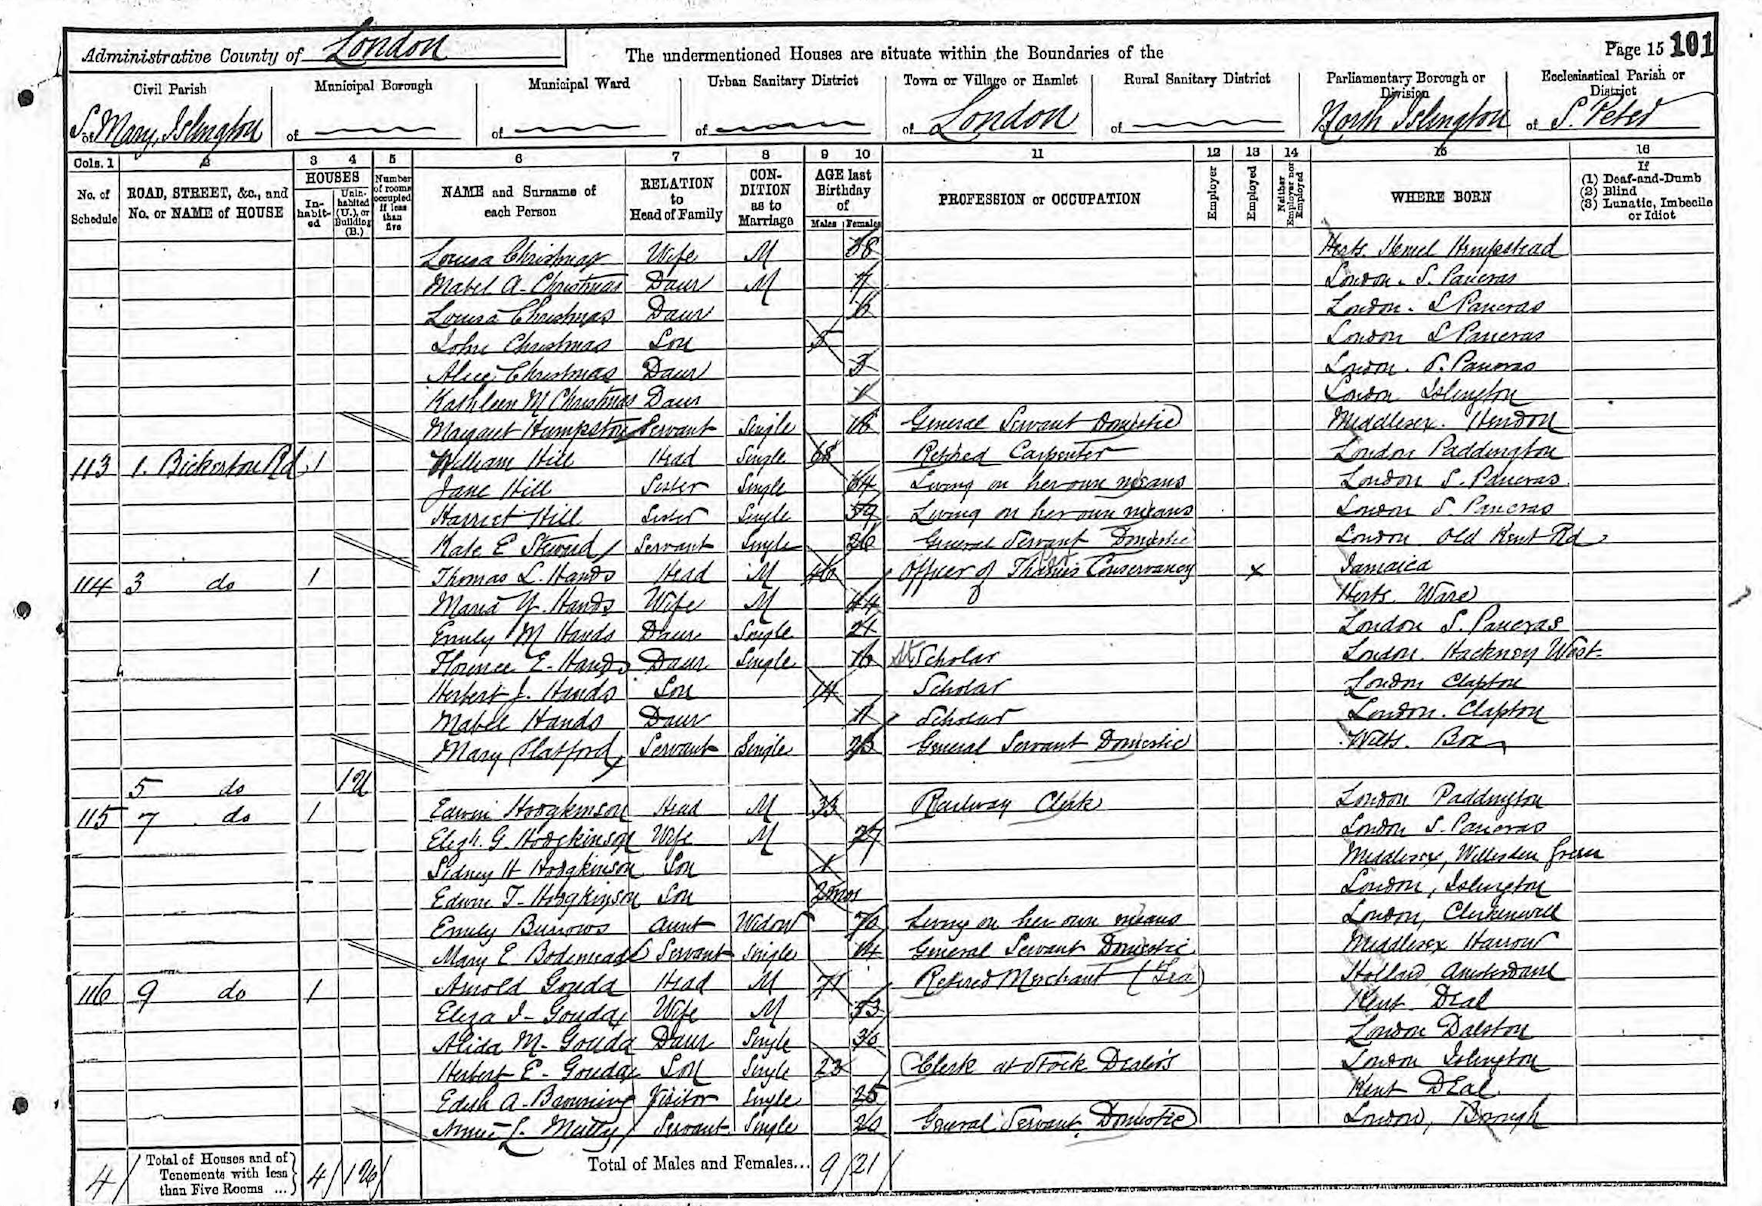 Administrative County of London
The undermentioned Houses are situate within the Boundaries of the
Page 15 101
Civil Parish Municipal Borough Municipal Ward Urban Sanitary District Town or Village or Hamlet Rural Sanitary District Parliamentary Borough or Division Ecclesiastical Parish or District
of S. Mary, Islington of of of of London of of North Islington of S. Peter
Cols. 1 2 3 4 5 6 7 8 9 10 11 12 13 14 15 16
No. of Schedule ROAD, STREET, &c., and No. or NAME of HOUSE HOUSES Inhabited Uninhabited (U.), or Building (B.) Number of rooms occupied if less than five NAME and Surname of each Person RELATION to Head of Family CONDITION as to Marriage AGE last Birthday of Males Females PROFESSION or OCCUPATION Employer Employed Neither Employer nor Employed WHERE BORN If (1) Deaf-and-Dumb (2) Blind (3) Lunatic, Imbecile or Idiot
Louisa Christmas Wife M 38 Herts. Hemel Hempstead
Mabel A. Christmas Daur M 7 London. S. Pancras
Louisa Christmas Daur 6 London. S Pancras
John Christmas Son 5 London S Pancras
Alice Christmas Daur 3 London. S. Pancras
Kathleen M Christmas Daur 1 London Islington
Margaret Humpston Servant Single 16 General Servant Domestic Middlesex. Hendon
113 1. Bickerton Rd 1 William Hill Head Single 68 Retired Carpenter London Paddington
Jane Hill Sister Single 64 Living on her own means London S. Pancras
Harriet Hill Sister Single 59 Living on her own means London S Pancras
Kate E Servant Single 26 General Servant Domestic London Old Kent Rd
114 3 do 1 Thomas L. Hands Head M 46 Officer of Thames Conservancy x Jamaica
Maria Y. Hands Wife M 44 Herts. Ware
Emily M Hands Daur Single 21 London S. Pancras
Florence E. Hands Daur Single 16 Scholar London. Hackney West
Herbert J. Hands Son 14 Scholar London Clapton
Mabel Hands Daur 11 Scholar London. Clapton
Mary Platford Servant Single 23 General Servant Domestic Wilts. Box
5 do 1 U
115 7 do 1 Edwin Hodgkinson Head M 33 Railway Clerk London Paddington
Elizh. G. Hodgkinson Wife M 27 London S. Pancras
Sidney H Hodgkinson Son 1 Middlesex, Willesden Green
Edwin T. Hodgkinson Son 2 mos London, Islington
Emily Burrows Aunt Widow 70 Living on her own means London, Clerkenwell
Mary E Bodemeade Servant Single 14 General Servant Domestic Middlesex Harrow
116 9 do 1 Arnold Gouda Head M 71 Retired Merchant (Tea) Holland, Amsterdam
Eliza J. Gouda Wife M 53 Kent Deal
Alida M. Gouda Daur Single 30 London Dalston
Herbert E. Gouda Son Single 23 Clerk at Stock Dealers London Islington
Edith A. Browning Visitor Single 25 Kent Deal
Annie L. Servant Single 20 General Servant Domestic London, Borough
4 Total of Houses and of Tenements with less than Five Rooms ... 4 1 U Total of Males and Females... 9 21